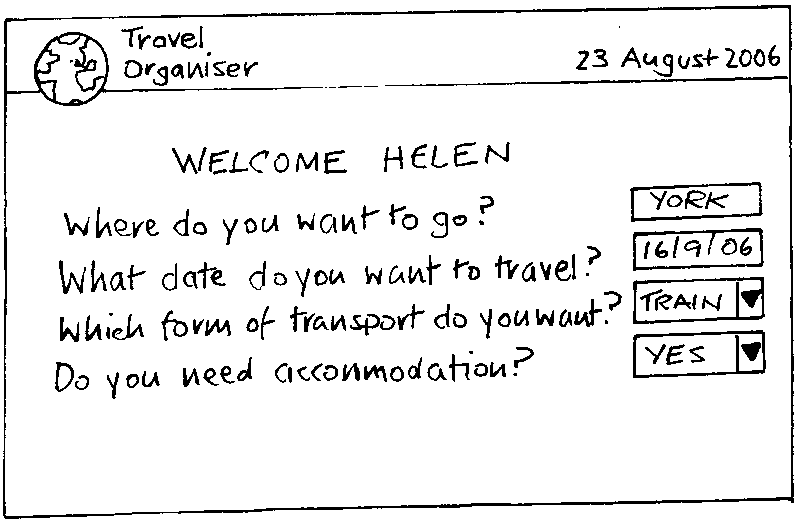 Travel
Organiser
23 August 2006
WELCOME HELEN
Where do you want to go? YORK
What date do you want to travel? 16/9/06
Which form of transport do you want? TRAIN
Do you need acconmodation? YES